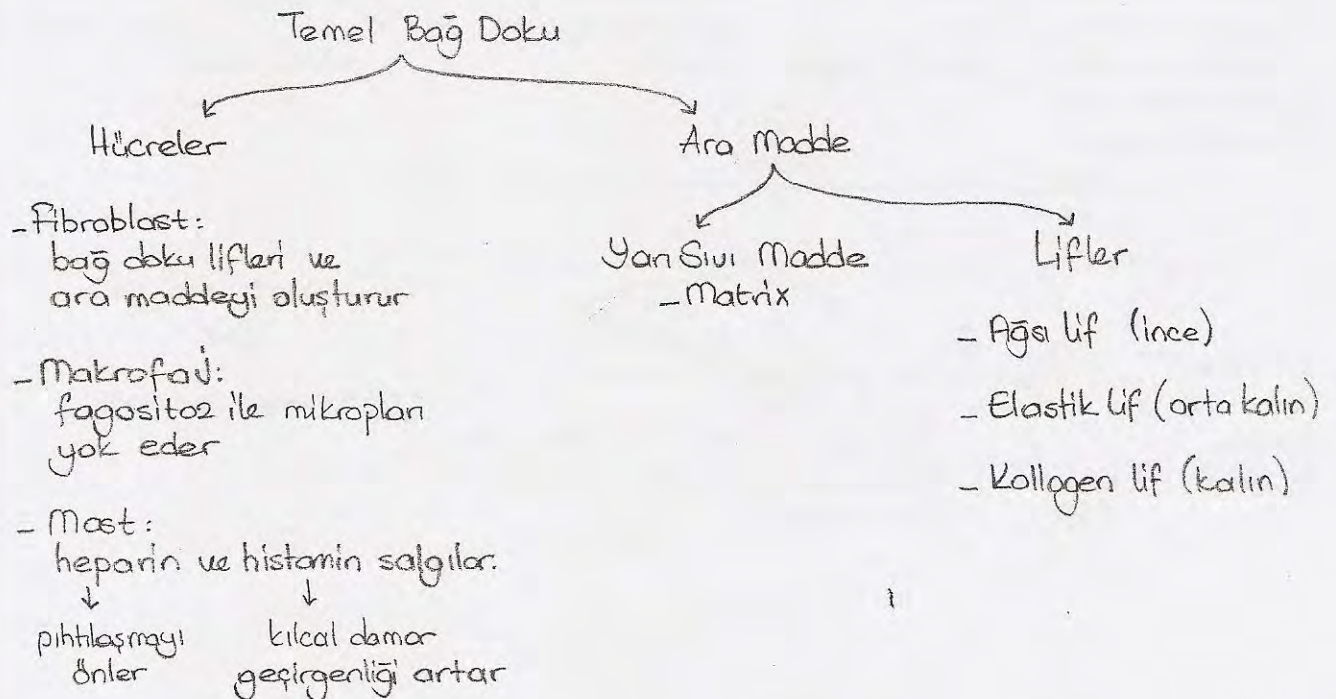 Temel Bağ Doku
Hücreler
- Fibroblast:
bağ doku lifleri ve
ara maddeyi oluşturur
- Makrofaj:
fagositoz ile mikropları
yok eder
- Mast:
heparin ve histamin salgılar.
pıhtılaşmayı
önler
kılcal damar
geçirgenliği artar
Ara Madde
Yarı Sıvı Madde
- Matrix
Lifler
- Ağsı lif (ince)
- Elastik lif (orta kalın)
- Kollogen lif (kalın)